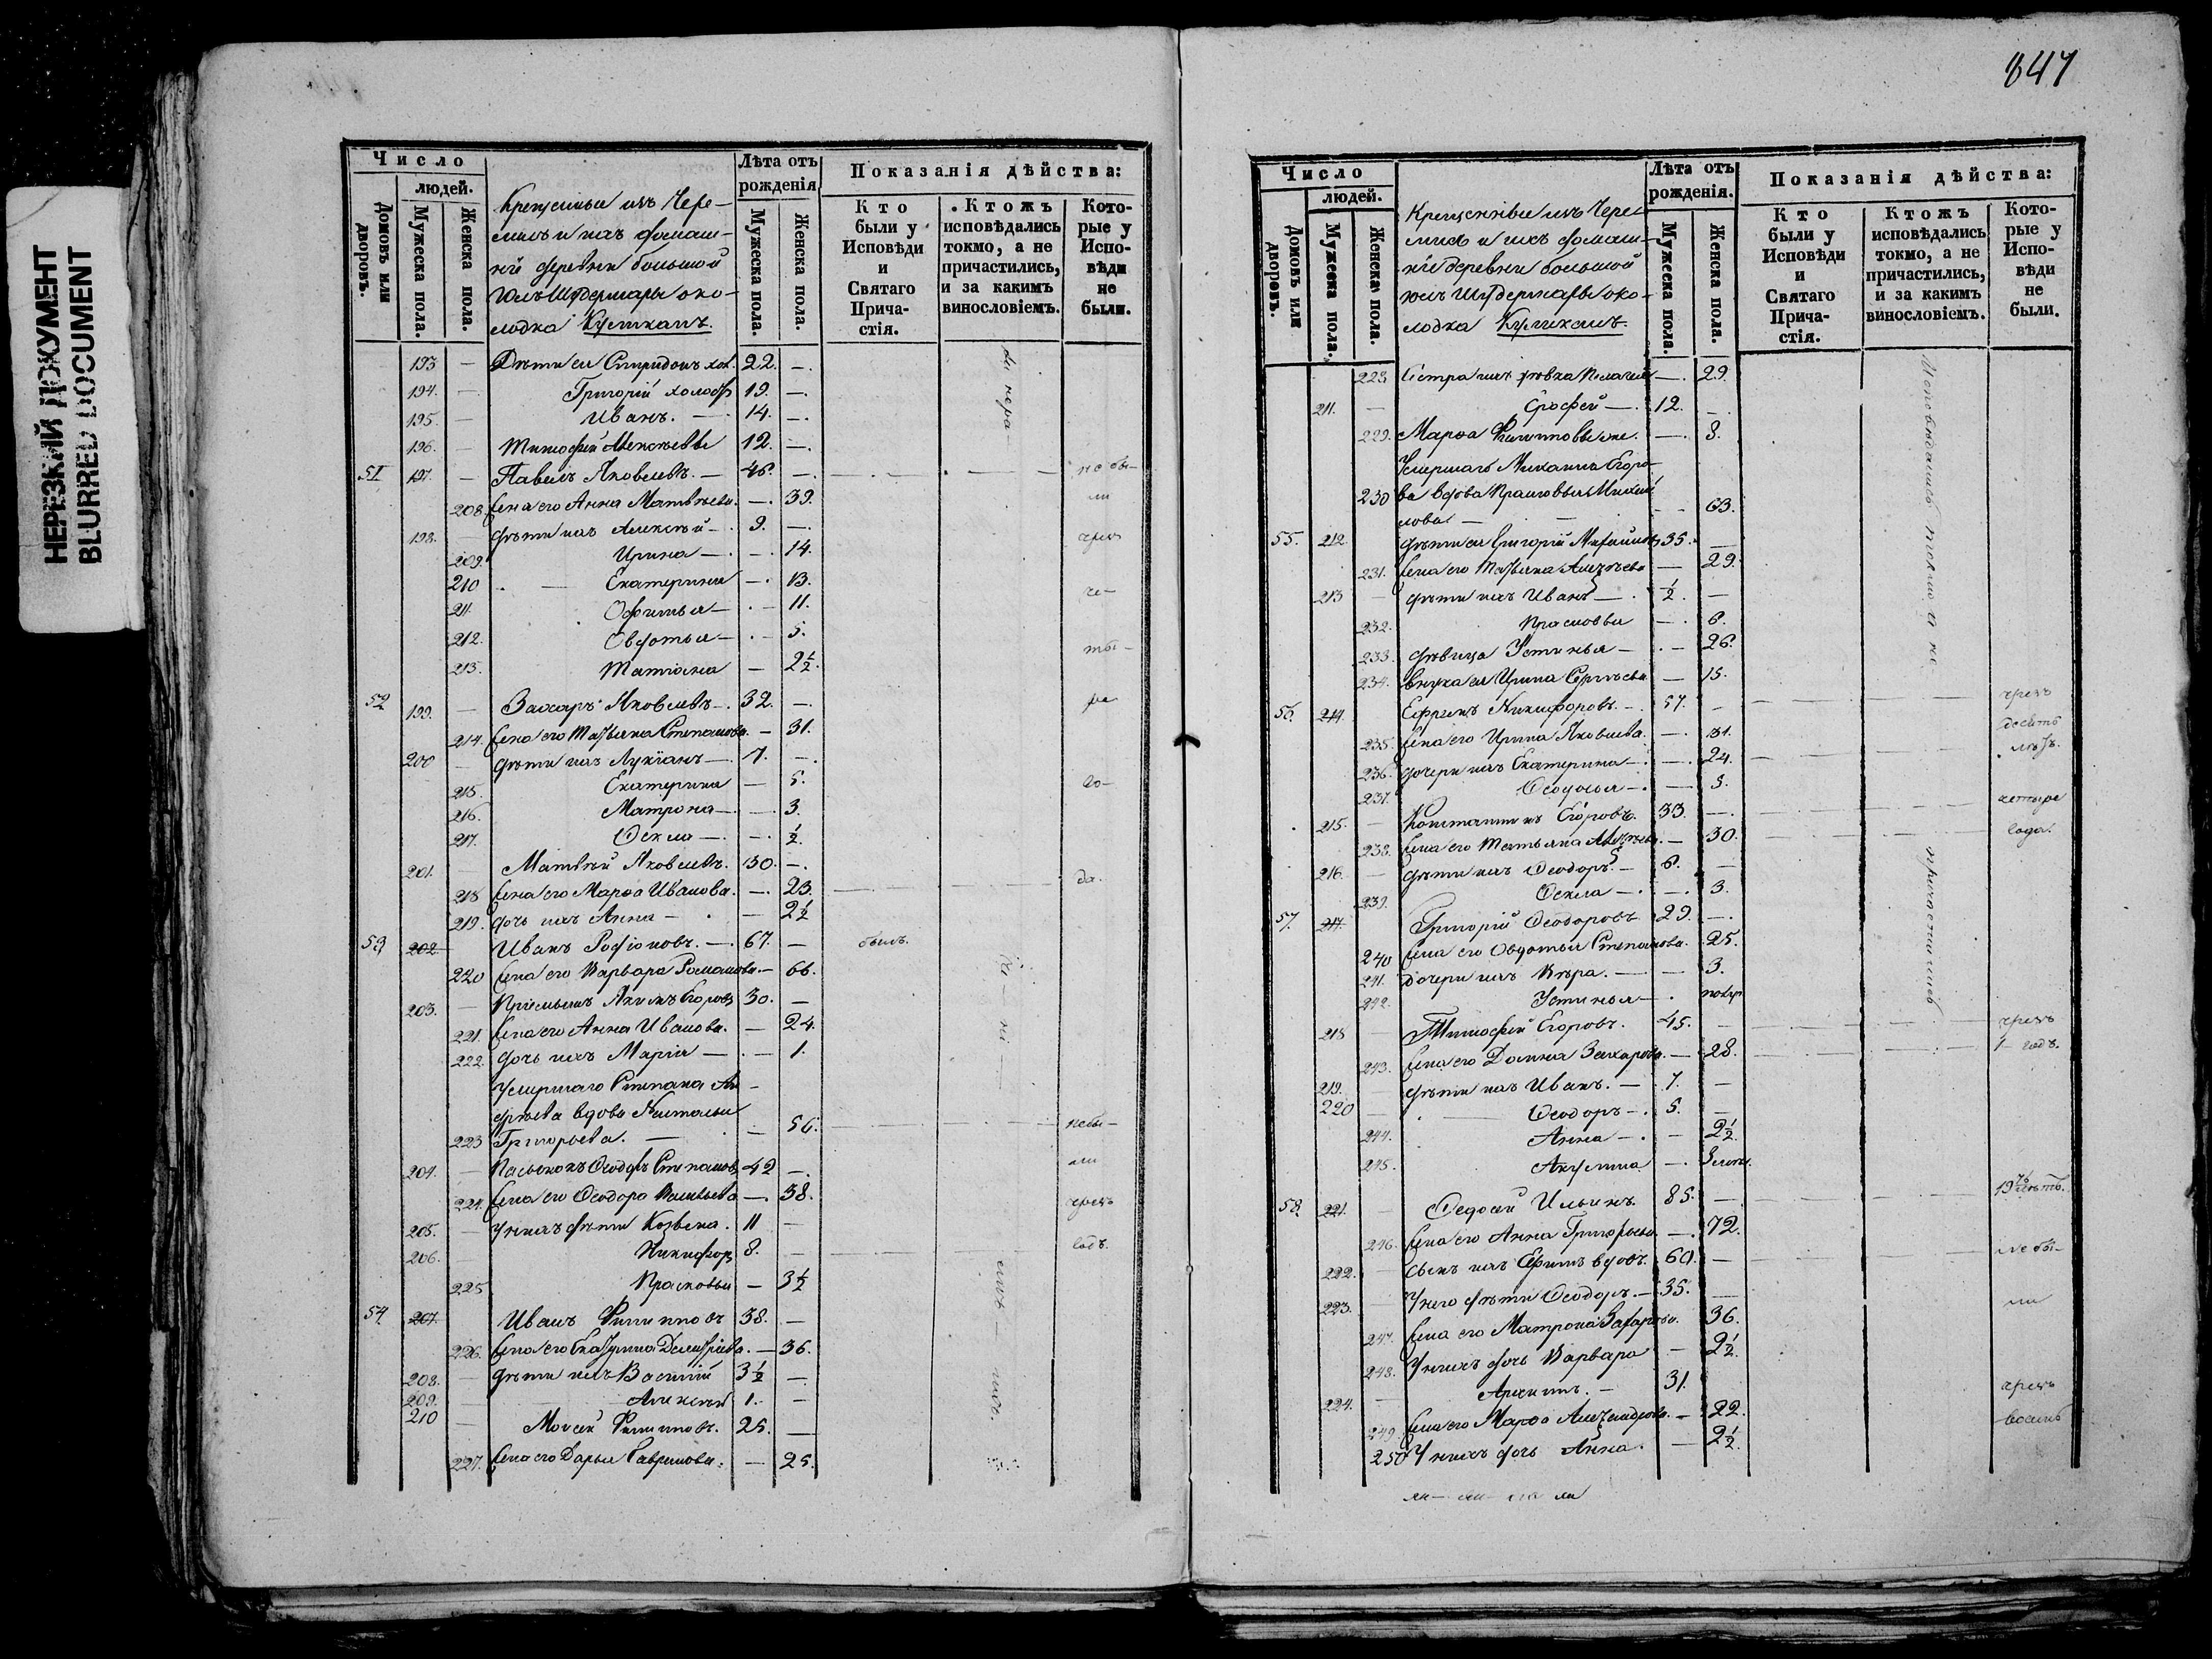 НЕРЕЗКИЙ ДОКУМЕНТ
BLURRED DOCUMENT
Число
людей.
Домовъ или дворовъ.
Мужеска пола.
Женска пола.
Крещеныи изъ Чере-
мисъ и ихъ домаш-
нiи деревни большой
околодка
Лѣта отъ рожденія
Мужеска пола.
Женска пола.
Показанія дѣйства:
Кто были у Исповѣди и Святаго Прича-стія.
Ктожъ исповѣдались токмо, а не причастились, и за какимъ винословіемъ.
Кото-рые у Испо-вѣди не были.
193 — Дѣти ея Спиридонъ хол. 22. —
194. — Григорій холостъ 19. —
195. — Иванъ. — 14. —
196. — Тимофей Алексѣевъ 12. —
51 197. — Павелъ Яковлевъ. — 46. — не бы-
208. Жена его Анна Матвѣева. — 39. ли
198. — дѣти ихъ Алексѣй — 9. —
209. Ирина — 14. чрезъ
210 Екатерина — 13.
211 Офимья — 11. че-
212. Овдотья — 5.
213. Татіана — 2½. ты-
52 199. — Захаръ Яковлевъ — 32. — ре
214. Жена его Татьяна Степанова. — 31.
200 — дѣти ихъ Лукіанъ — 7. —
215. Екатерина — 5. го-
216. Матрона — 3.
217. Өекла — ½.
201. — Матвѣй Яковлевъ. 30. —
218 Жена его Марѳа Иванова. — 23. да.
219. дочь ихъ Анна — 2½
53 202 Иванъ Родіоновъ. — 67. — былъ.
220 Жена его Варвара Романова — 66.
203. — Пріемышъ Акимъ Егоровъ 30. —
221. Жена его Анна Иванова. — 24.
222. дочь ихъ Марія — 1.
Умершаго Степана Ан-
дреева вдова Наталья
223 Григорьева. — 56. небы-
204. — Пасынокъ Ѳеодоръ Степановъ 42 — ли
224. Жена его Ѳеодора Васильева — 38. чрезъ
205. — У нихъ дѣти Козьма. 11 —
206. — Никифоръ 8. — годъ.
225 Прасковья — 3½
54 207. Иванъ Филипповъ 38. —
226. Жена его Екатерина Димитріева. — 36.
208. — дѣти ихъ Василій 3½ —
209. — Алексѣй 1. —
210 — Моисей Филипповъ. 25. —
227. Жена его Дарья Гаврилова. — 25.
847
Число
людей.
Домовъ или дворовъ.
Мужеска пола.
Женска пола.
Крещеныи изъ Чере-
мисъ и ихъ домаш-
ніи деревни большой
околодка
Лѣта отъ рожденія.
Мужеска пола.
Женска пола.
Показанія дѣйства:
Кто были у Исповѣди и Святаго Прича-стія.
Ктожъ исповѣдались токмо, а не причастились, и за какимъ винословіемъ.
Кото-рые у Испо-вѣди не были.
228 Сестра ихъ дѣвка Пелагея — 29.
211. — Ерофей — 12. —
229. Марѳа Филиппова — 8.
Умершаго Михаила Егоро-
230 ва вдова Прасковья Михай-
лова — 63.
55. 212. дѣти ея Григорій Михайловъ 35. —
231. Жена его Татьяна Алексѣева — 29.
213 — дѣти ихъ Иванъ — ½. —
232. Прасковья — 6.
233. дѣвица Устинья — 26.
234. внука ея Ирина Сергѣева — 15.
56. 214. Ефремъ Никифоровъ. — 57. — чрезъ
235. Жена его Ирина Яковлева. — 51. десять
236. дочери ихъ Екатерина — 24. лѣтъ.
237. Ѳеодосья — 3.
215. — Константинъ Егоровъ. 33. — четыре
238. Жена его Татьяна Алексѣева — 30. года.
216. — дѣти ихъ Ѳеодоръ — 6. —
239. Ѳекла — 3.
57. 217. Григорій Ѳеодоровъ 29. —
240 Жена его Овдотья Степанова. 25.
241. дочери ихъ Вѣра. — 3.
242. Устинья — полуг.
218 Тимофей Егоровъ. 45. — чрезъ
243. Жена его Домна Захарова. — 28. 1 годъ.
219. — дѣти ихъ Иванъ. — 7. —
220 — Ѳеодоръ — 5. —
244. Анна — 2½.
245. Акулина —
58. 221. — Ѳедосей Ильинъ. 85. —
246. Жена его Анна Григорьева — 72.
222. — сынъ ихъ Ефимъ вдовъ. 60. — не бы-
223. — У него дѣти Ѳеодоръ. — 35. — ли
247. Жена его Матрона Захарова. 36.
248. У нихъ дочь Варвара — 2½.
224. — Архипъ. — 31. чрезъ
249. Жена его Марѳа Александрова. — 22. восемь
250 У нихъ дочь Анна. — 2½.